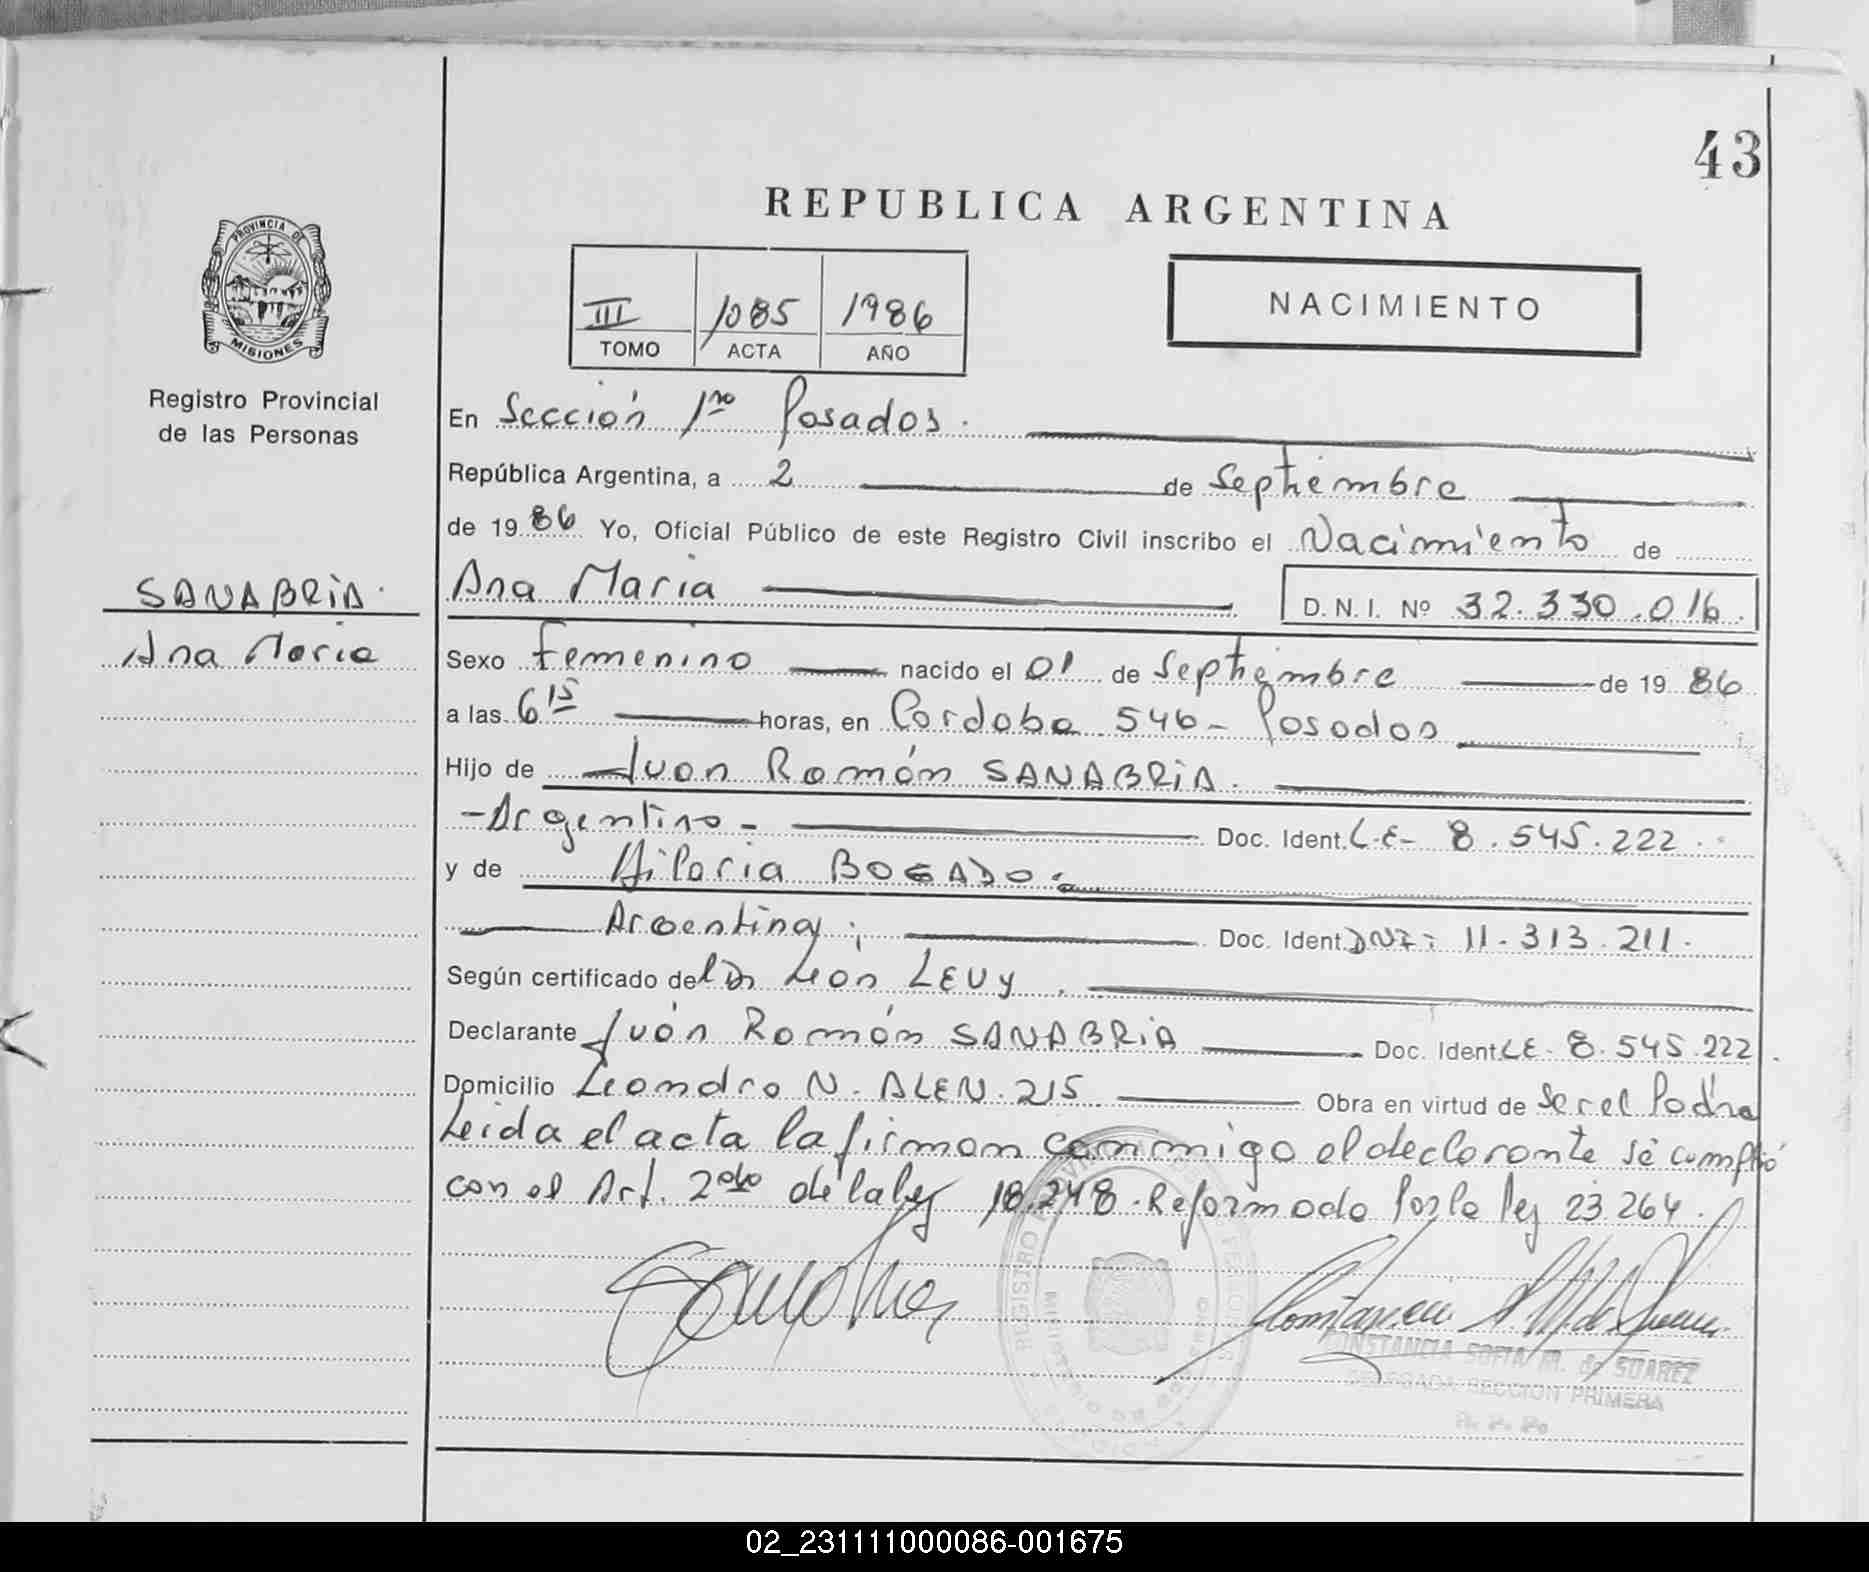 43
REPUBLICA ARGENTINA
PROVINCIA DE
MISIONES
III 1085 1986
TOMO ACTA AÑO
NACIMIENTO
Registro Provincial
de las Personas
En Sección 1ra Posadas.
República Argentina, a 2 de Septiembre
de 1986 Yo, Oficial Público de este Registro Civil inscribo el Nacimiento de
SANABRIA.
Ana Maria
Ana Maria D.N.I. Nº 32.330.016.
Sexo Femenino nacido el 01 de Septiembre de 1986
a las 6 15 horas, en Cordoba 546 - Posadas
Hijo de Juan Ramón SANABRIA.
- Argentino - Doc. Ident. L.E- 8.545.222.
y de Hilaria BOGADO.
Argentina; Doc. Ident. DNI: 11.313.211.
Según certificado del Dr León LEVY.
Declarante Juán Ramón SANABRIA Doc. Ident. LE. 8.545.222.
Domicilio Leandro N. ALEN. 215 Obra en virtud de Ser el Padre
Leida el acta la firman conmigo el declarante se cumplió
con el Art. 2do de la ley 18.248. Reformado por la ley 23.264.
REGISTRO
CONSTANCIA SOFIA M. de SUAREZ
DELEGADA SECCION PRIMERA
R. P. P.
02_231111000086-001675